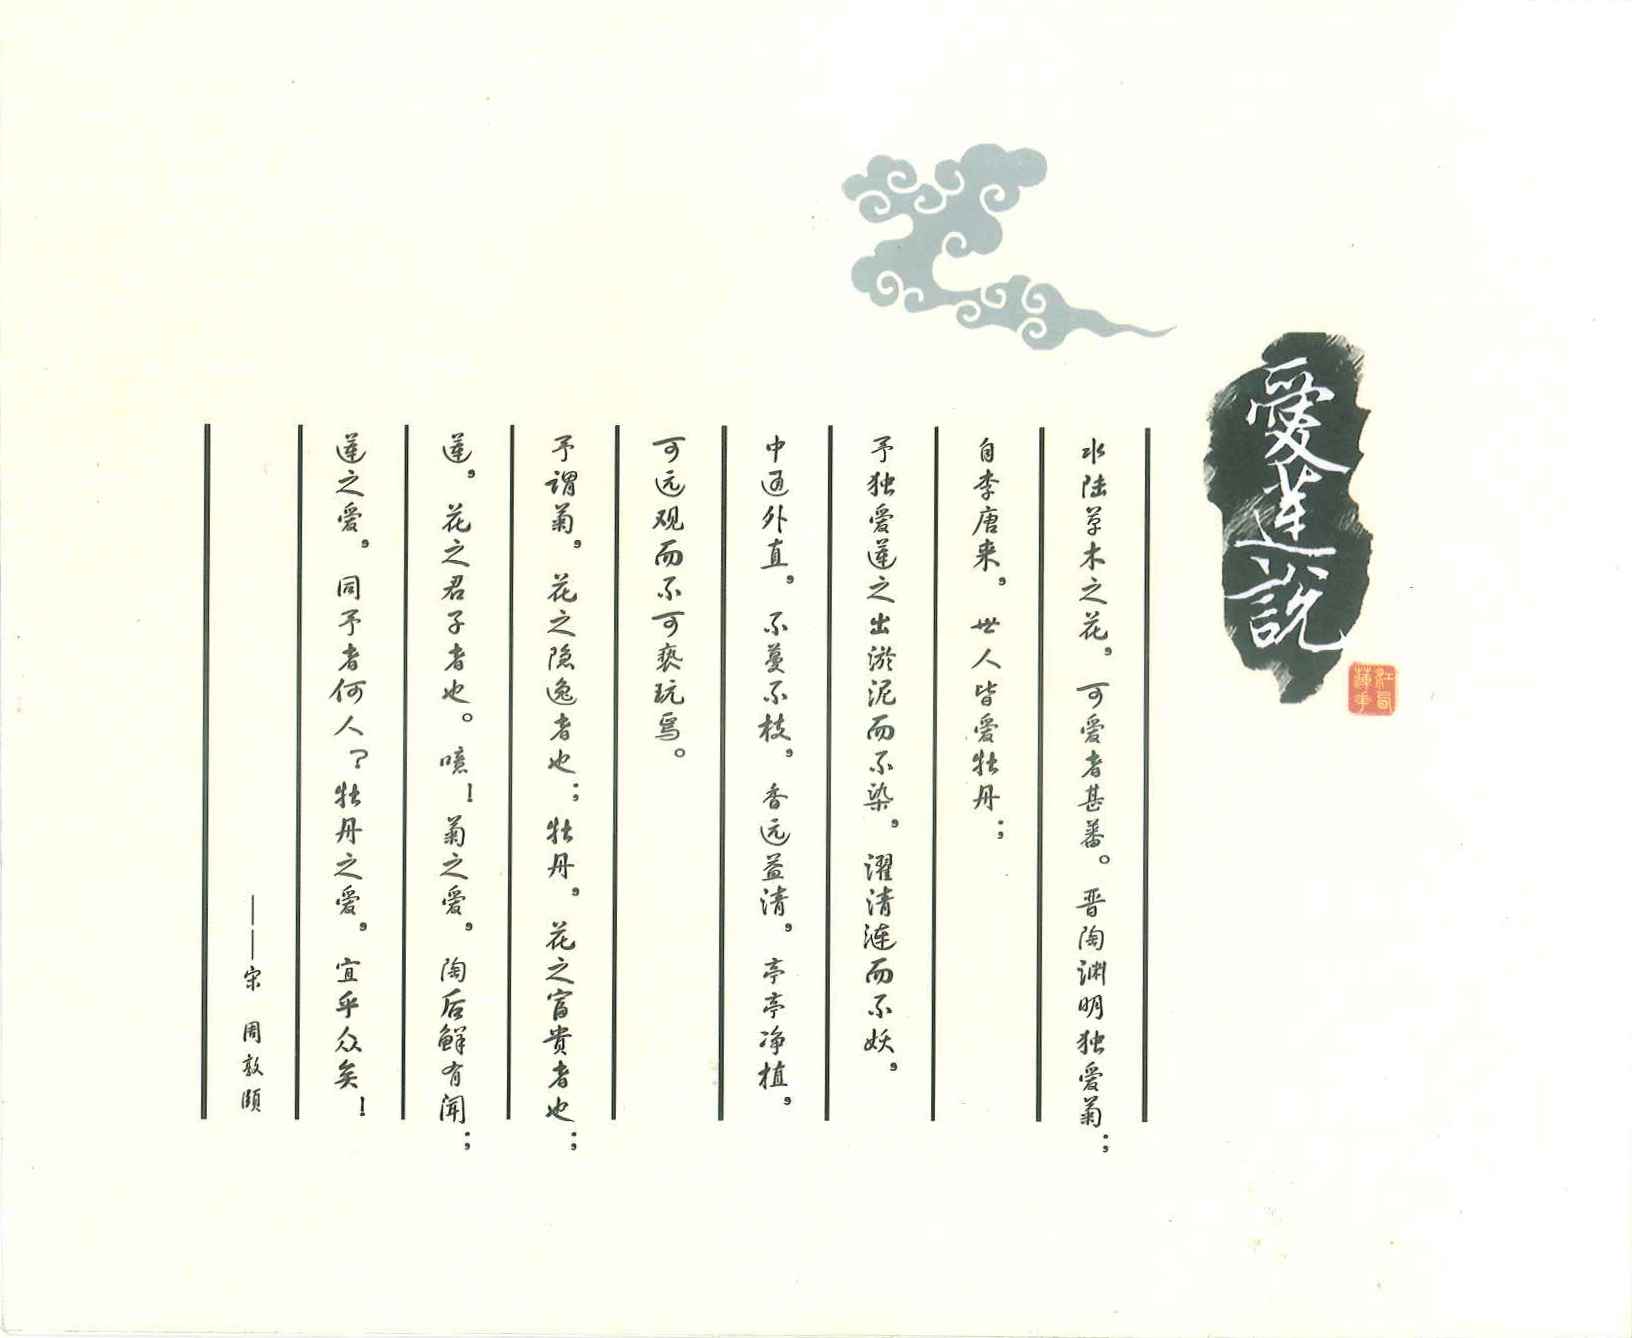 愛蓮説
水陆草木之花，可爱者甚蕃。晋陶渊明独爱菊；
自李唐来，世人皆爱牡丹；
予独爱莲之出淤泥而不染，濯清涟而不妖，
中通外直，不蔓不枝，香远益清，亭亭净植，
可远观而不可亵玩焉。
予谓菊，花之隐逸者也；牡丹，花之富贵者也；
莲，花之君子者也。噫！菊之爱，陶后鲜有闻；
莲之爱，同予者何人？牡丹之爱，宜乎众矣！
——宋 周敦颐